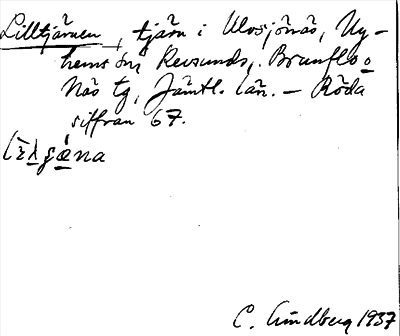 Lilltjärnen, tjärn i Ulvsjönäs, Ny-
hems sn, Revsunds, Brunflo o
Näs tg, Jämtl. län. – Röda
siffran 67.
C. Lundberg 1937